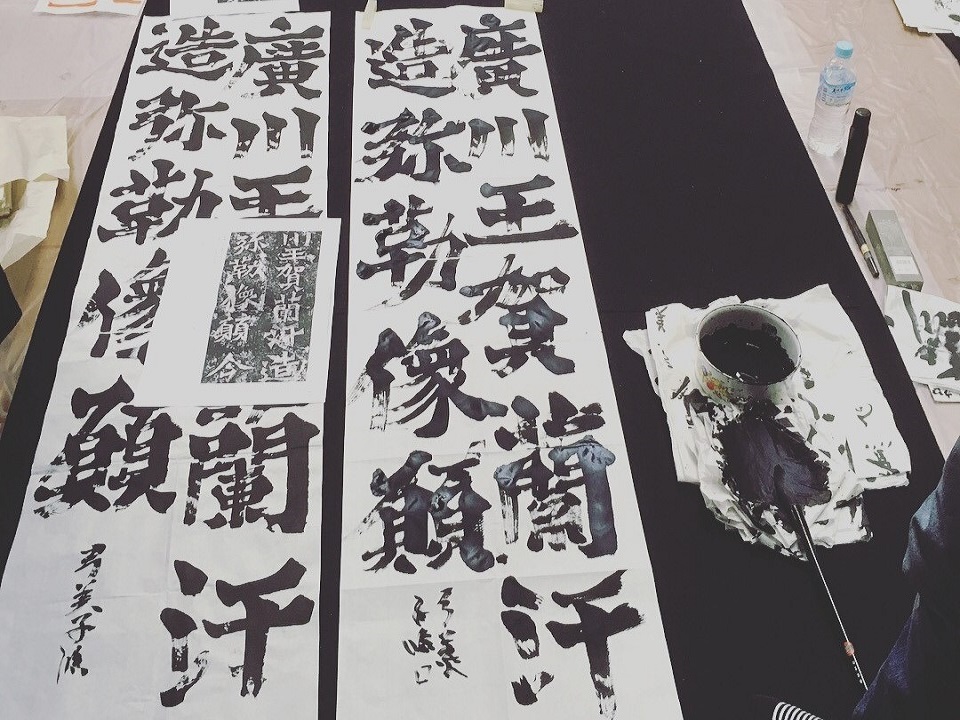 廣川王賀蘭汗
造弥勒像願
廣川王蘭汗
造弥勒像願
川王賀蘭汗造
弥勒像願令